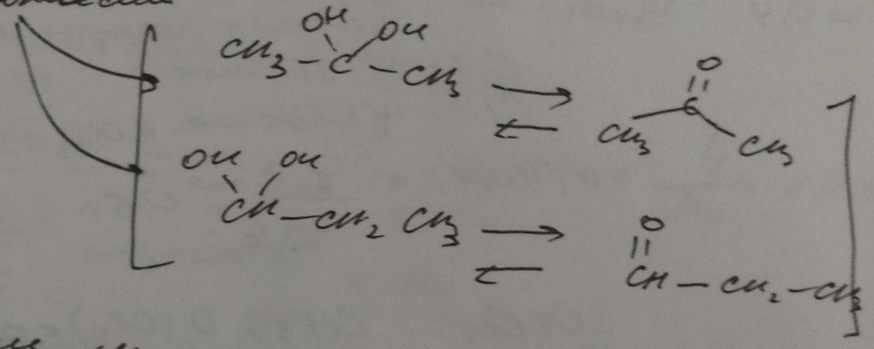 OH OH
CH3 - C - CH3 ⇌ O
CH3 C CH3
OH OH
CH - CH2 CH3 ⇌ O
CH - CH2 - CH3